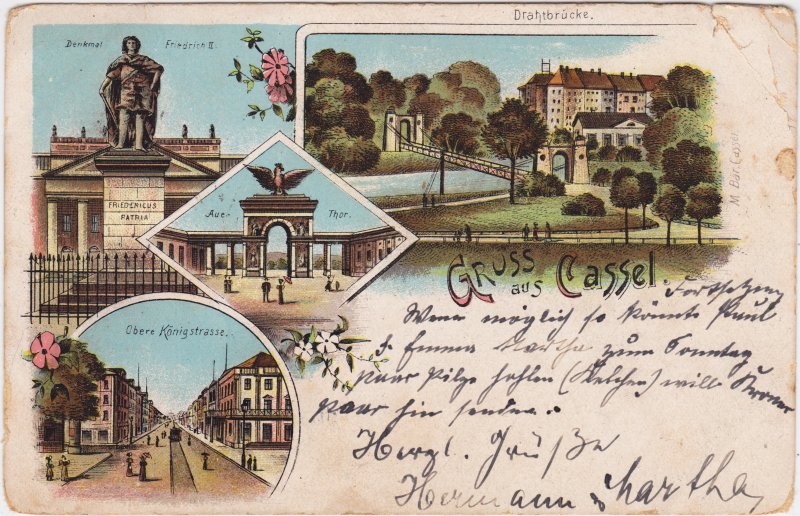 Drahtbrücke.
Denkmal Friedrich II.
FRIEDERICUS
PATRIA
Auer Thor.
M. Bär, Cassel
GRUSS aus Cassel.
Obere Königstrasse.
Fortsetzung
Wenn möglich so könnte Paul
& Emma Martha zum Sonntag
paar Pilze hohlen will
paar hin senden.
Herzl. Grüße
Hermann & Martha